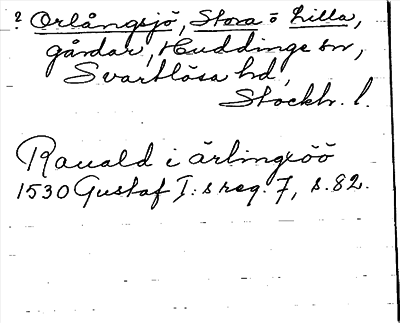 ? Orlångsjö, Stora o Lilla,
gårdar, Huddinge sn,
Svartlösa hd,
Stockh. l.
Ranald i ärlingsöö
1530 Gustaf I:s reg. 7, s. 82.